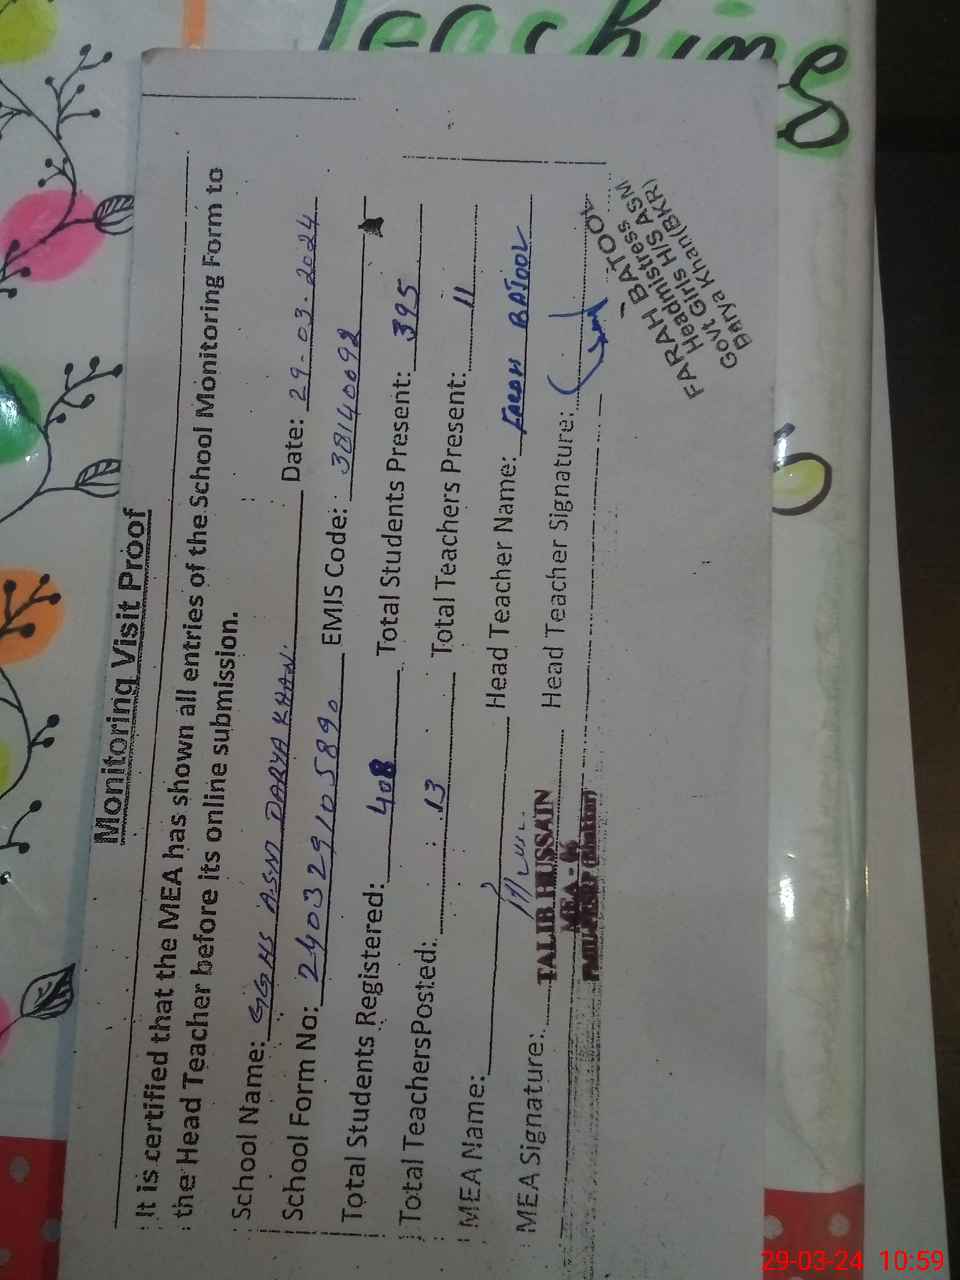 Teaching
Monitoring Visit Proof
It is certified that the MEA has shown all entries of the School Monitoring Form to
the Head Teacher before its online submission.
School Name: GGHS ASM DARYA KHAN. Date: 29-03-2024
School Form No: 240329105890 EMIS Code: 38140092
Total Students Registered: 408 Total Students Present: 395
Total TeachersPosted: 13 Total Teachers Present: 11
MEA Name: Head Teacher Name: FARAH BATOOL
MEA Signature: Head Teacher Signature:
TALIB HUSSAIN
MEA - 06
FARAH BATOOL
Headmistress
Govt Girls H/S ASM
Darya Khan(BKR)
29-03-24 10:59